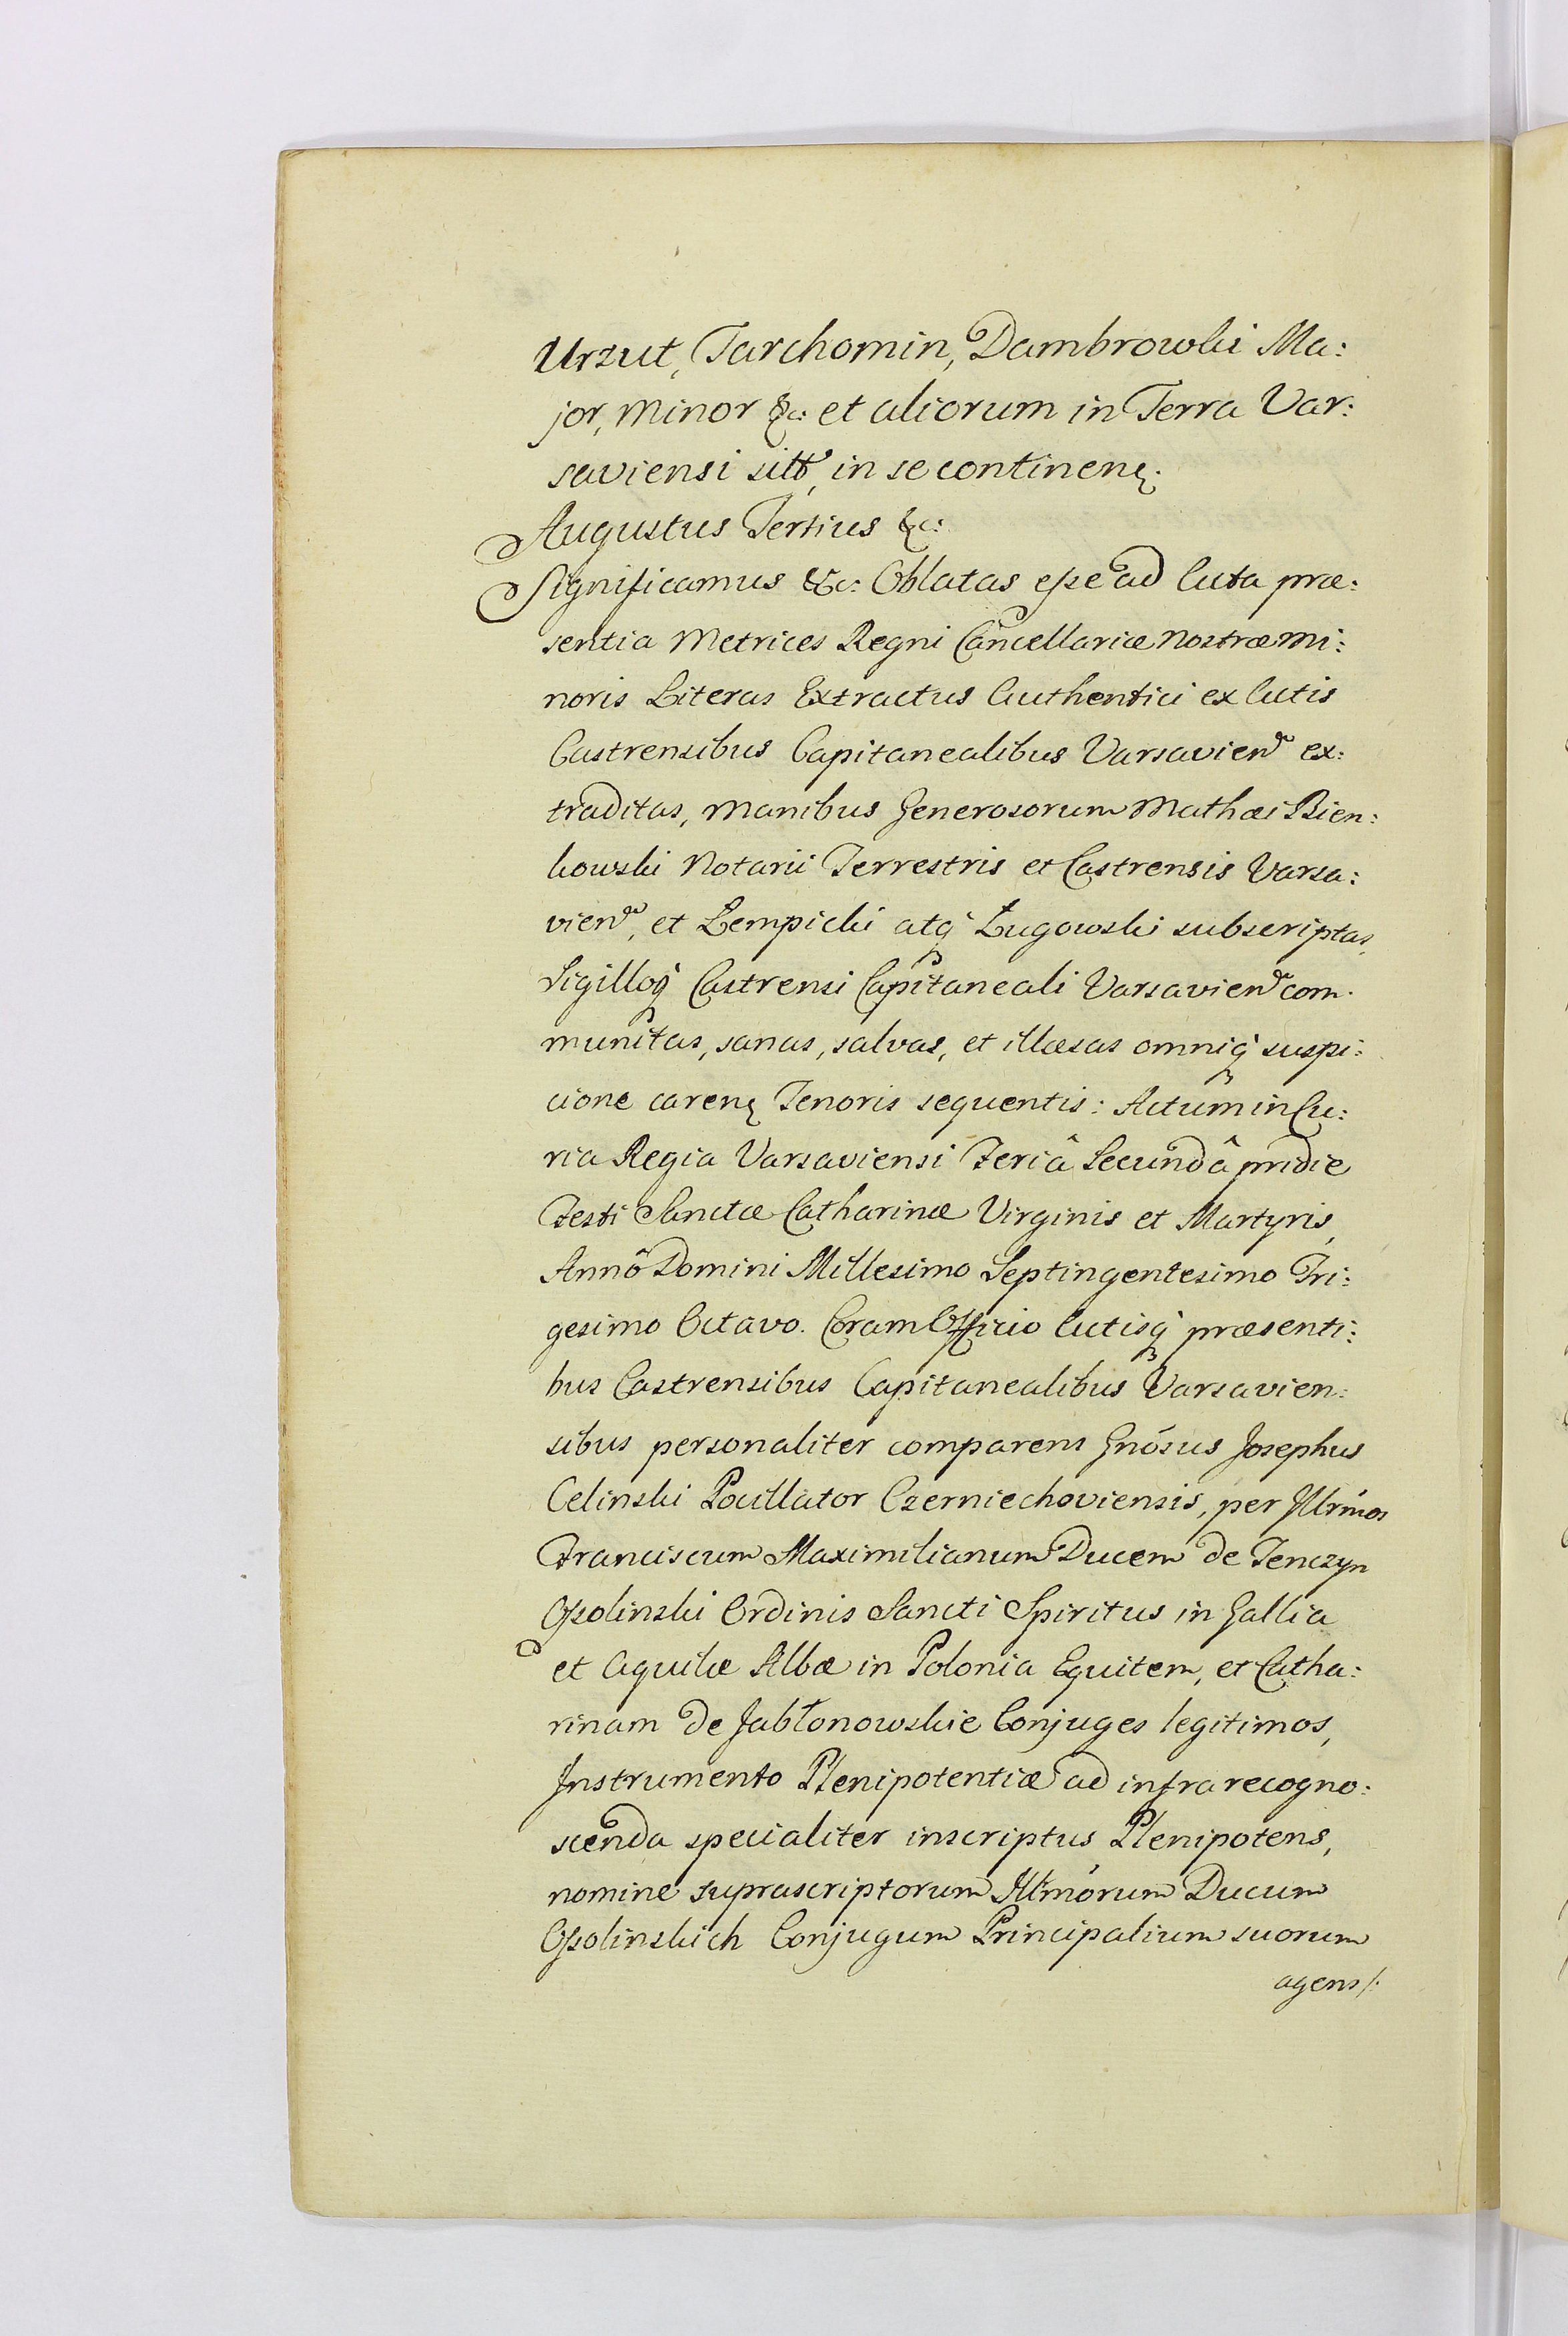 Urzut, Tarchomin, Dambrowki Ma:
jor, Minor &c: et aliorum in Terra Var:
saviensi sitt, in se continen.
Augustus Tertius &c:
Significamus &c: Oblatas esse ad Acta præ:
sentia Metrices Regni Cancellariæ Nostræ Mi:
noris Literas Extractus Authentici ex Actis
Castrensibus Capitanealibus Varsavien ex:
traditas, Manibus Generosorum Mathæi Bien:
kowski Notarii Terrestris et Castrensis Varsa:
vien, et Łempicki atq Ługowski subscriptas,
Sigilloq Castrensi Capitaneali Varsavien com.
munitas, sanas, salvas, et illæsas omniq suspi:
cione caren Tenoris sequentis: Actum in Cu:
ria Regia Varsaviensi Feriâ Secundâ pridie
Festi Sanctæ Catharinæ Virginis et Martyris,
Annô Domini Millesimo Septingentesimo Tri:
gesimo Octavo. Coram Officio Actisq præsenti:
bus Castrensibus Capitanealibus Varsavien:
sibus personaliter comparens Gnosus Josephus
Celinski Pocillator Czerniechoviensis, per Illrmos
Franciscum Maximilianum Ducem de Tenczyn
Ossolinski Ordinis Sancti Spiritus in Gallia
et Aquilæ Albæ in Polonia Equitem, et Catha:
rinam de Jabłonowskie Conjuges legitimos,
Instrumento Plenipotentiæ ad infra recogno:
scenda specialiter inscriptus Plenipotens,
nomine suprascriptorum Illmorum Ducum
Ossolinskich Conjugum Principalium suorum
agens/: